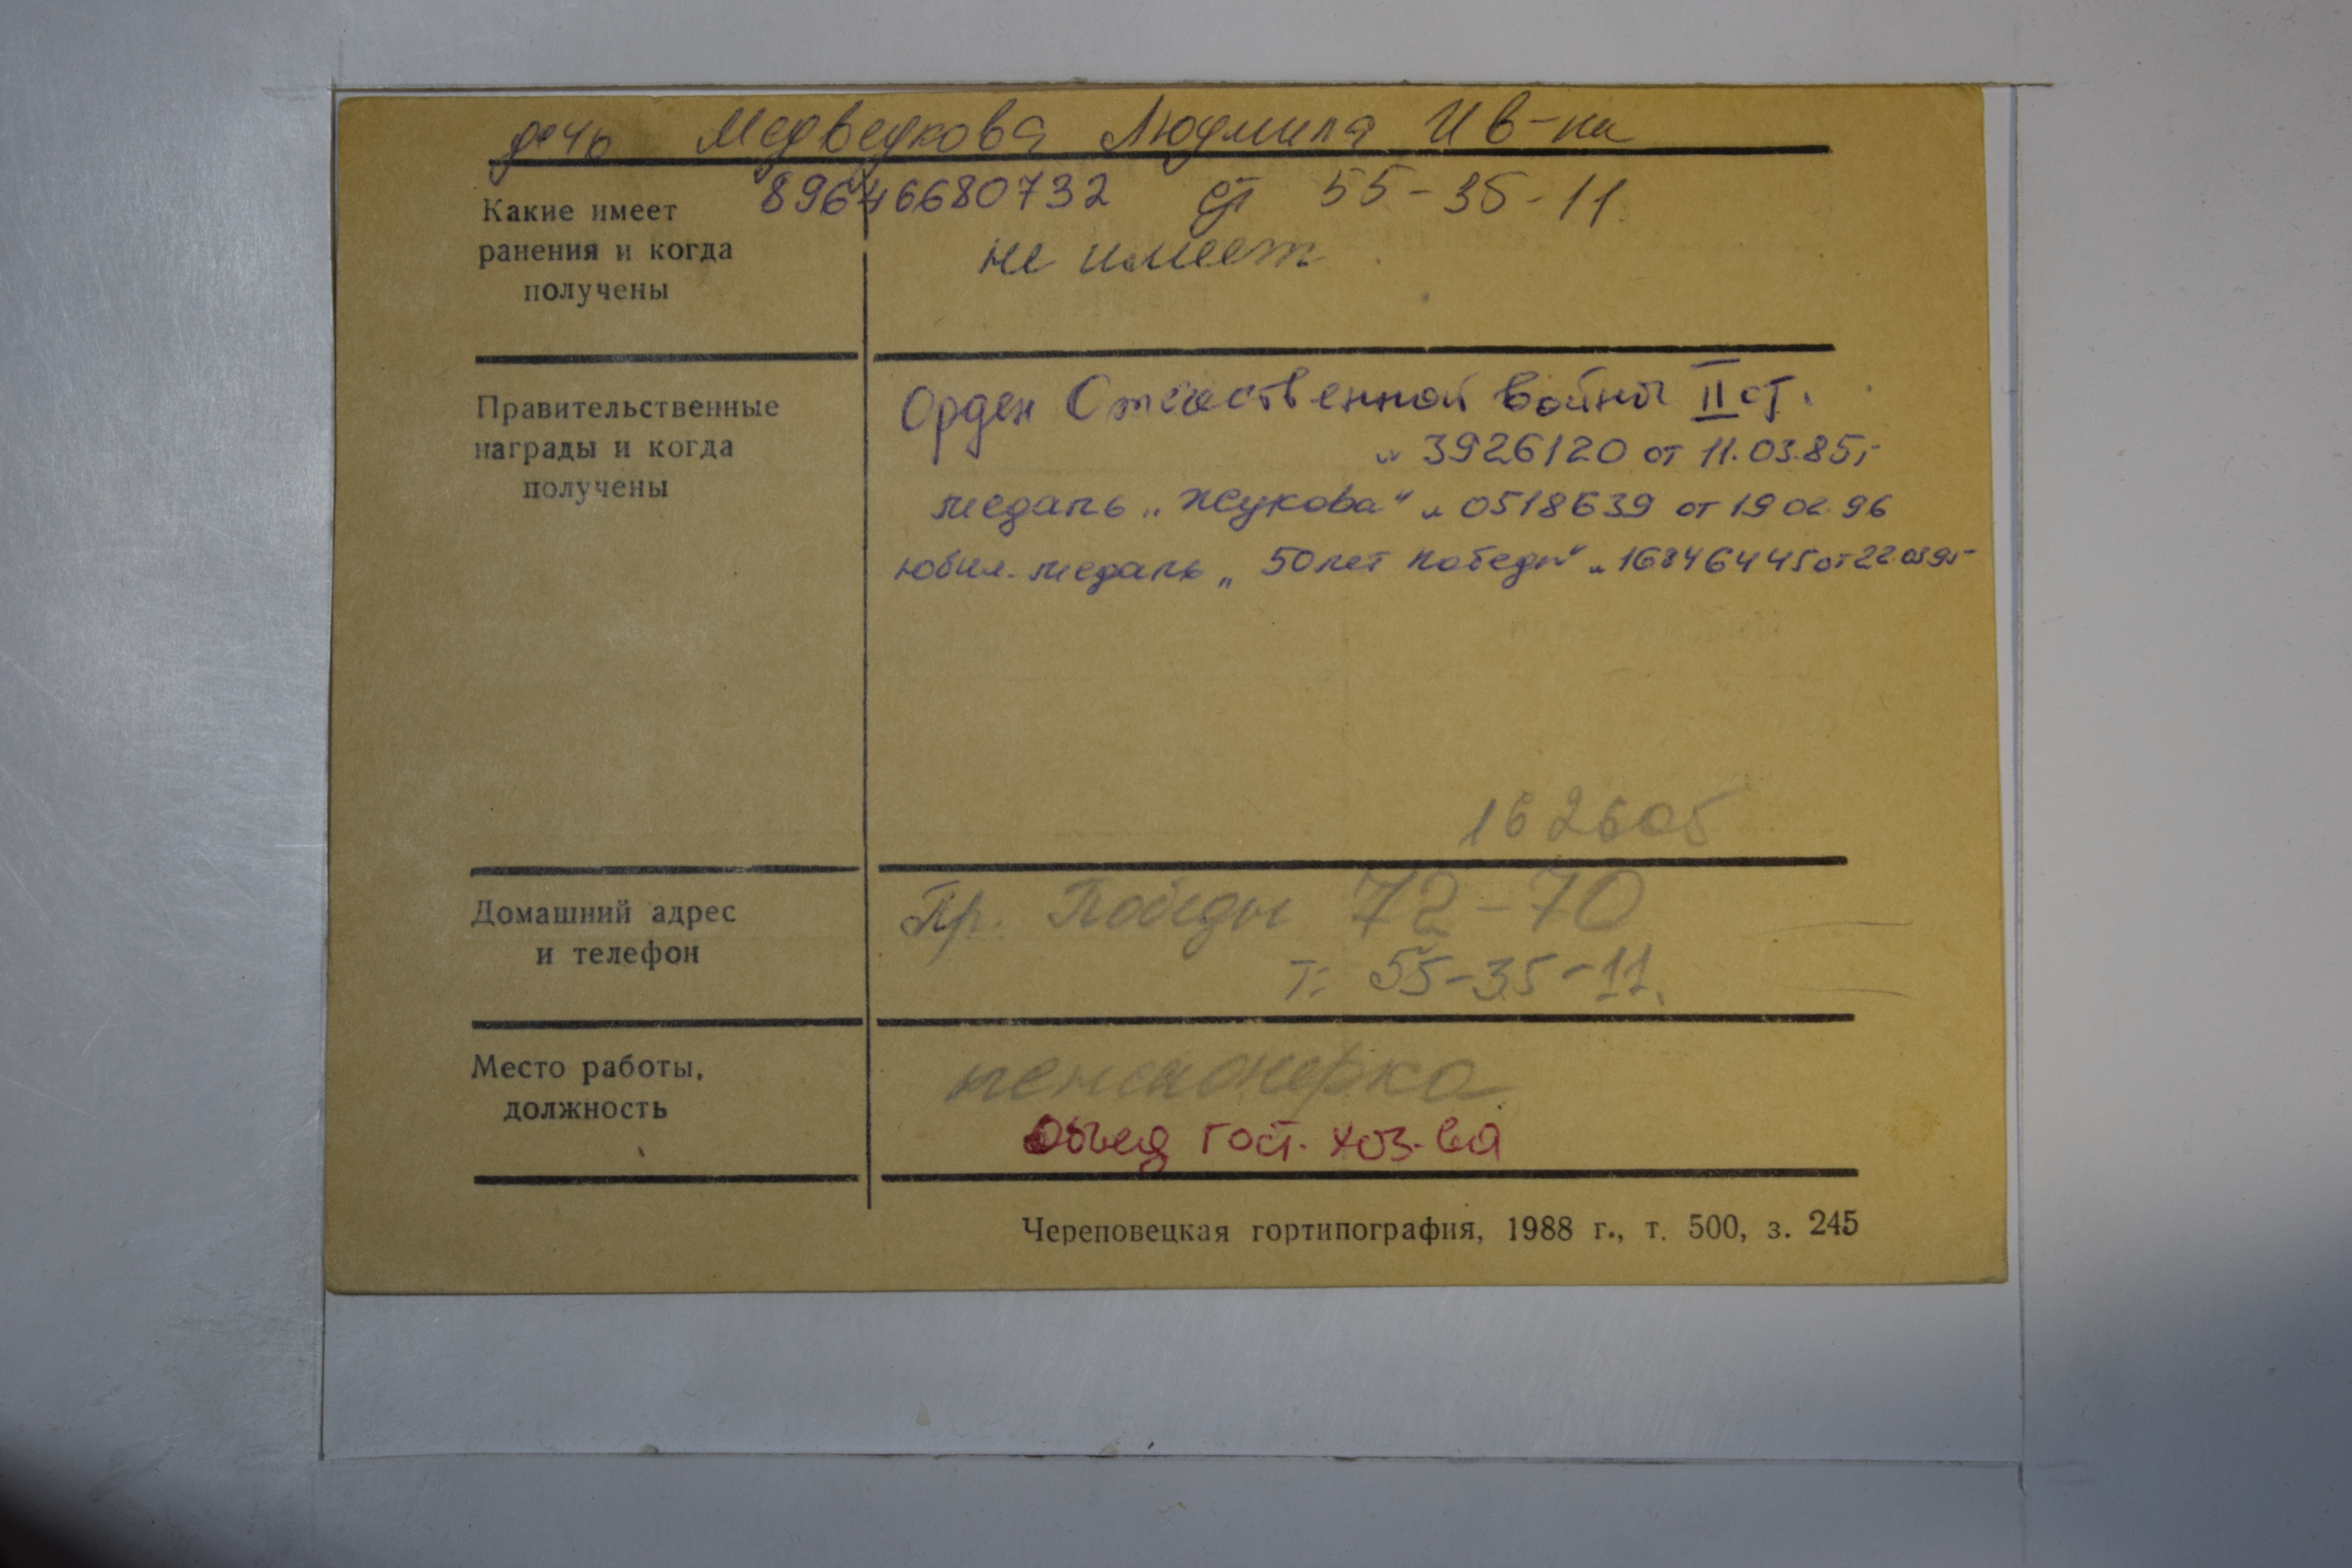 дочь Медведкова Людмила Ив-на
89646680732 дт 55-35-11.
Какие имеет
ранения и когда
получены
не имеет
Правительственные
награды и когда
получены
Орден Отечественной войны II ст.
н 3926120 от 11.03.85г
медаль „Жукова" н 0518639 от 19 02 96
юбил. медаль „50 лет победы" н 16846445 от 22 03 95
162605
Домашний адрес
и телефон
Пр. Победы 72-70
т. 55-35-11.
Место работы,
должность
пенсионерка
Объед гост. хоз-ва
Череповецкая гортипография, 1988 г., т. 500, з. 245